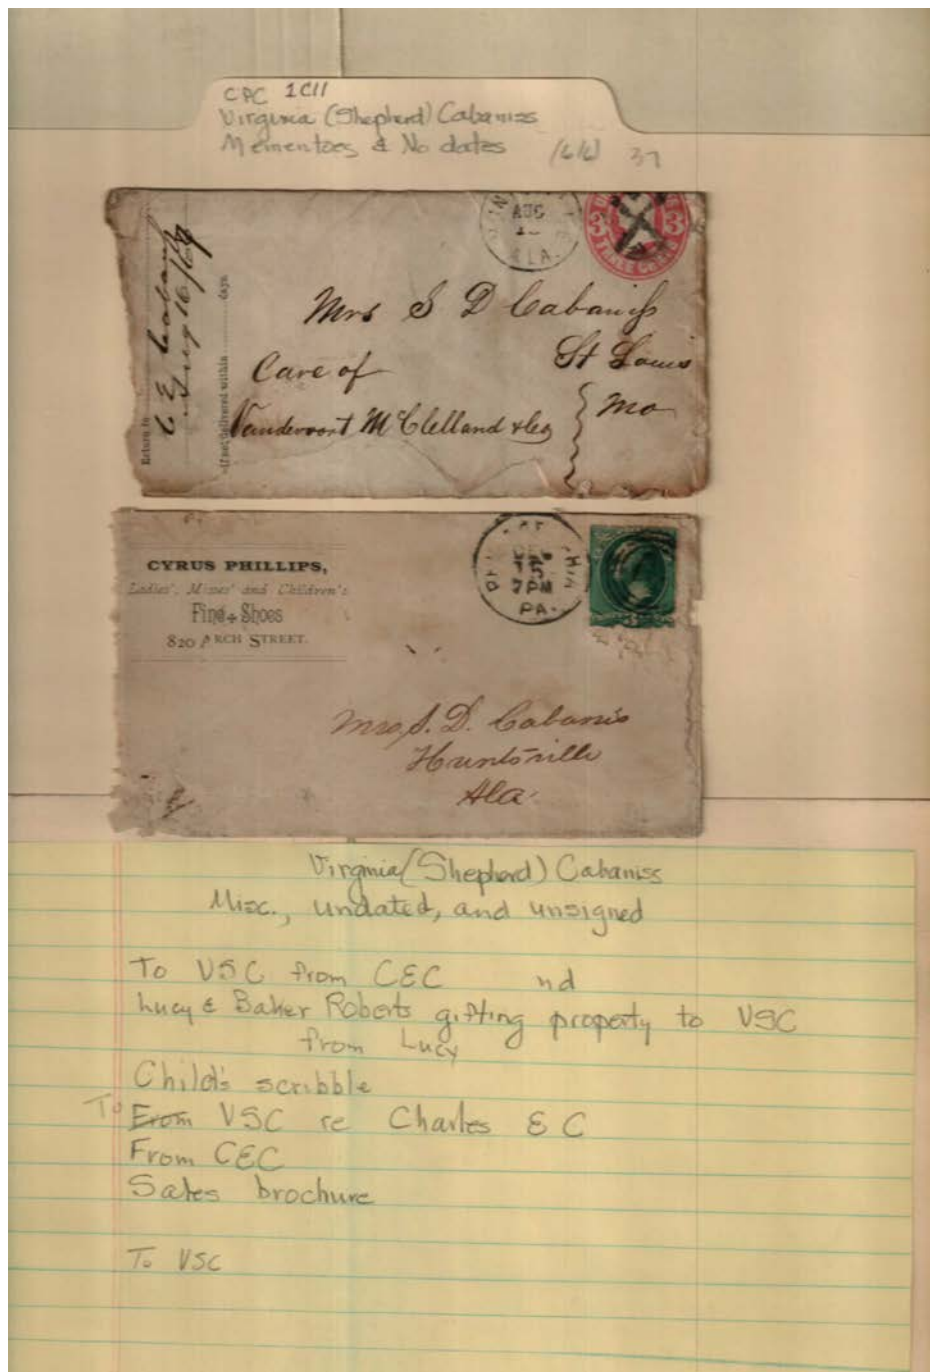 CPC 1C11
Virginia (Shepherd) Cabaniss
Mementoes & No dates (6/6) 37
Return to
C. E. Cabaniss
Aug 16/69
If not delivered within days
AUG
ALA.
3 3
THREE CENTS
Mrs S D Cabaniss
St Louis
Care of
Mo
Vandervoort McClelland & Co
CYRUS PHILLIPS,
Ladies', Misses' and Children's
Fine Shoes
820 ARCH STREET.
7 PM
PA.
Mrs S. D. Cabanis
Huntsville
Ala.
Virginia (Shepherd) Cabaniss
Misc., undated, and unsigned
To VSC from CEC nd
Lucy & Baker Roberts gifting property to VSC
from Lucy
Child's scribble
To From VSC re Charles E C
From CEC
Sales brochure
To VSC